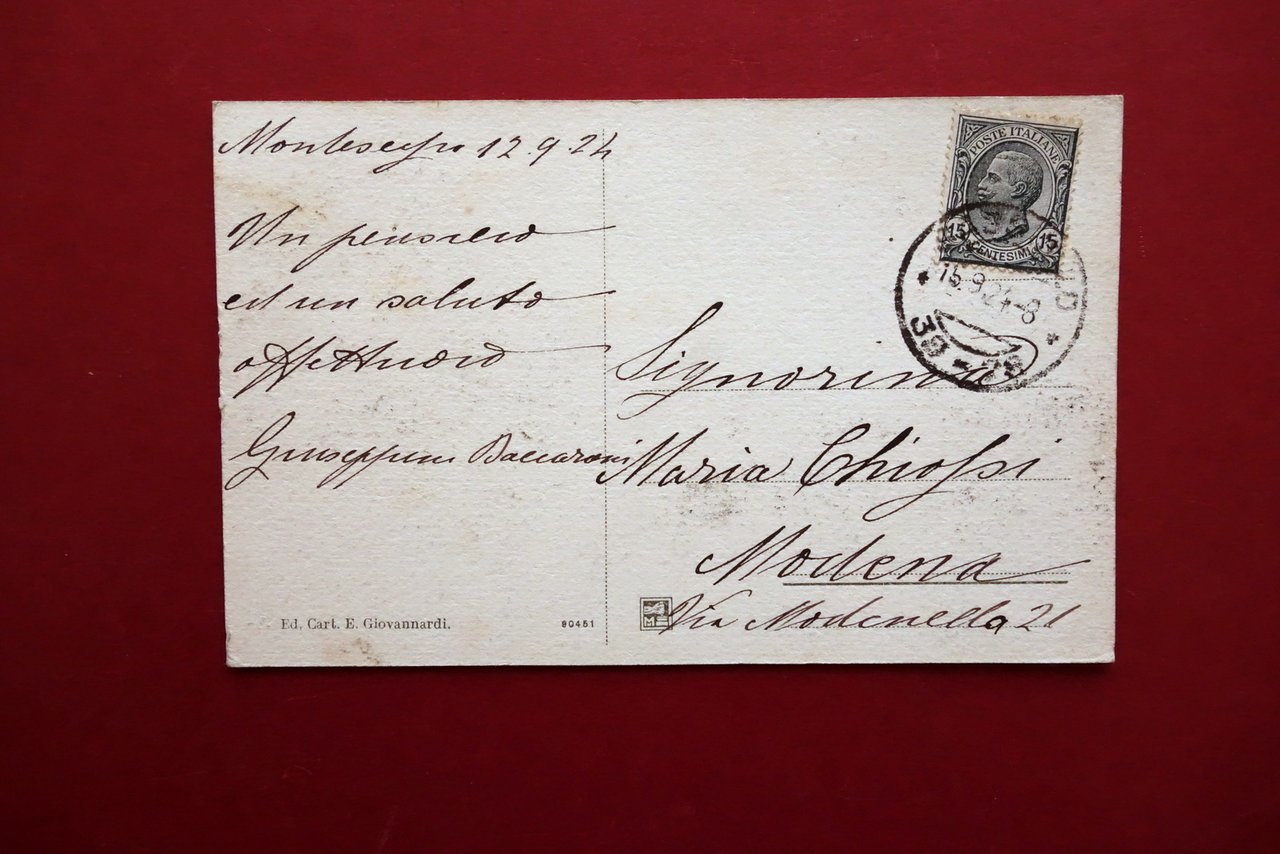 12.9.24
Un pensiero
ed un saluto
affettuoso
Giuseppina Baccarani
Ed. Cart. E. Giovannardi.
80451
POSTE ITALIANE
15 CENTESIMI 15
15.9.24-8
Signorina
Maria Chiossi
Modena
Via Modenella 21